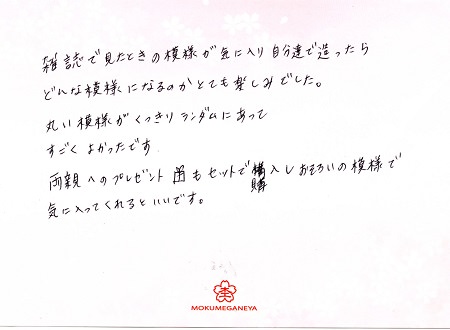 雑誌で見たときの模様が気に入り自分達で造ったら
どんな模様になるのかとても楽しみでした。
丸い模様がくっきりランダムにあって
すごくよかったです
両親へのプレゼント皿もセットで購入しおそろいの模様で
気に入ってくれるといいです。
MOKUMEGANEYA